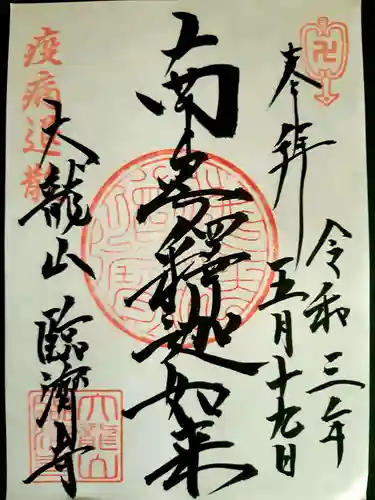 奉拝
令和三年
五月十九日
南無釋迦如来
疫病退散
大龍山 臨濟寺